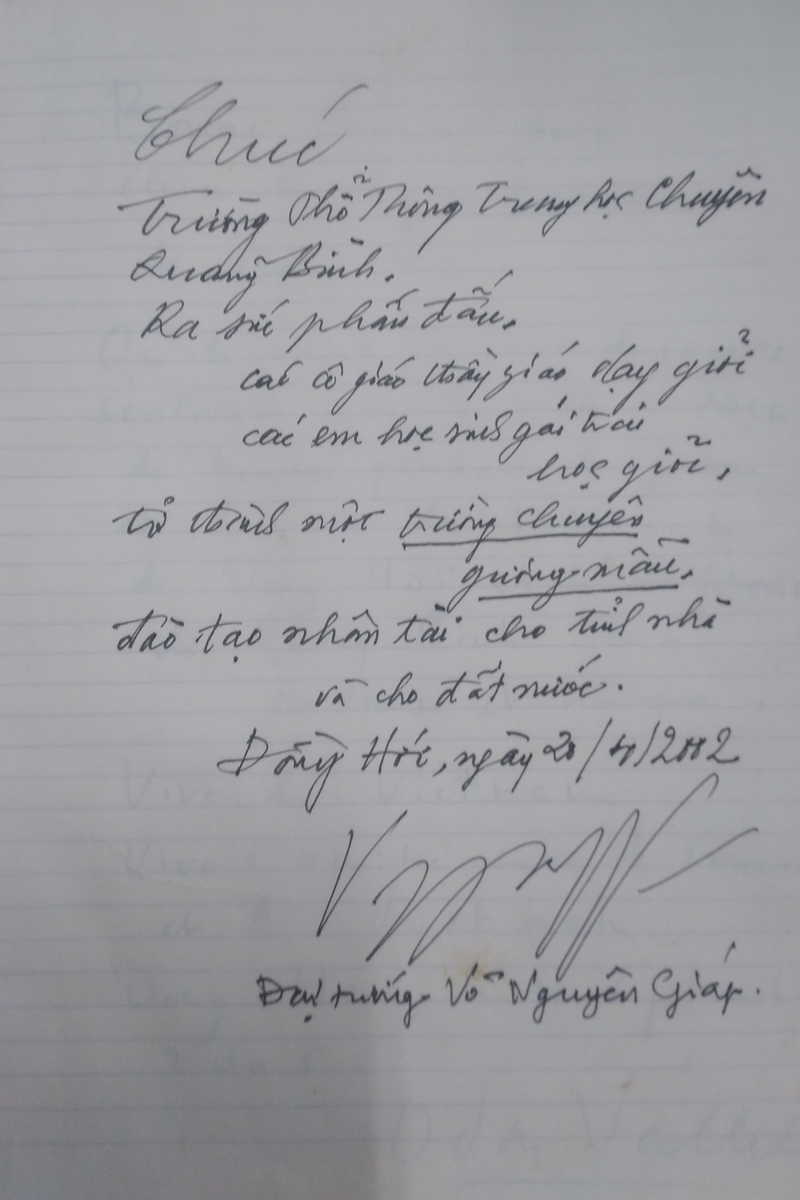 Chúc
Trường Phổ Thông Trung học Chuyên
Quảng Bình.
Ra sức phấn đấu,
các cô giáo thầy giáo dạy giỏi
các em học sinh gái trai
học giỏi,
trở thành một trường chuyên
gương mẫu,
đào tạo nhân tài cho tỉnh nhà
và cho đất nước.
Đồng Hới, ngày 20/ /2002
Đại tướng Võ Nguyên Giáp.